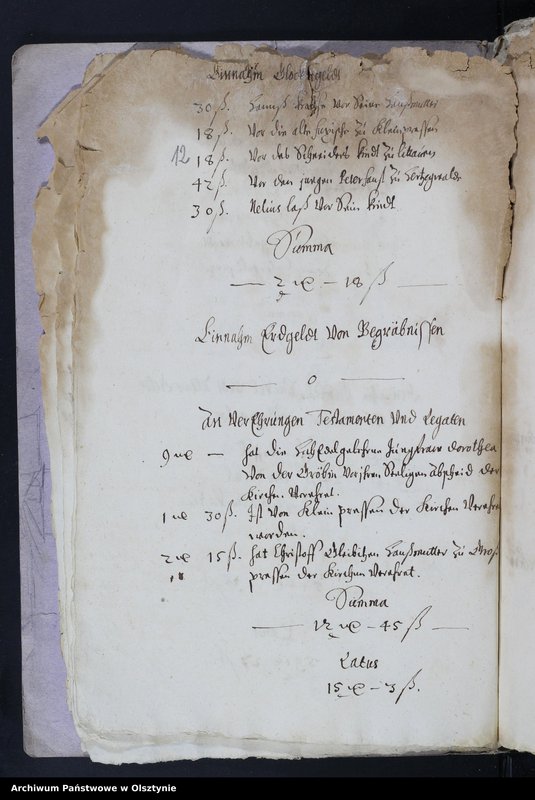 Einnahm Glockengeldt
30 ß. Hanß vor Seine Haußmutter
18 ß. Vor die alte zu Kleinpressen
12
18 ß. Vor des Schneiders kindt zu Littauen
42 ß. Vor den jungen Peter zu
30 ß. Melius laß Vor Sein kindt.
Summa
2 – 18 ß
Einnahm Erdgeldt Von Begräbnissen
0
An Verehrungen Testamenten Und Legaten
9 — hat die Jungfraw Dorothea
Von der Gröbin Seeligen Abscheid der
Kirchen Verehret.
1 30 ß. Ist Von Klein pressen der Kirchen Verehret
worden.
2 15 ß. hat Christoff Haußmutter zu Groß
pressen der Kirchen Verehret.
Summa
12 – 45 ß
Latus
15 – 3 ß.
Archiwum Państwowe w Olsztynie